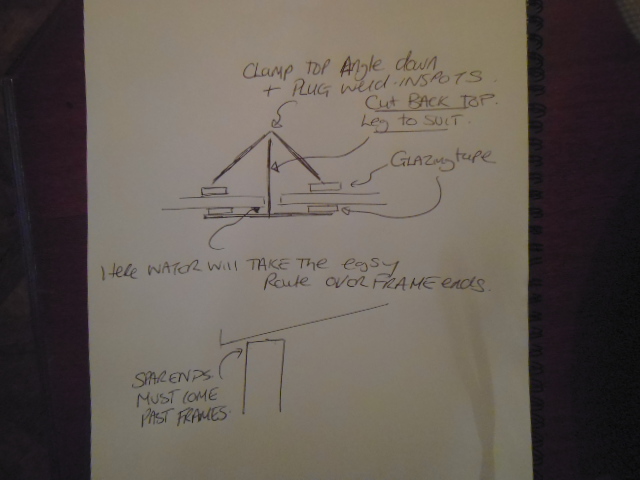 Clamp TOP Angle down
+ PLUG Weld-INSPOTS.
Cut BACK TOP.
Leg To SUIT.
GLAZINGtape
Here WATOR WILL TAKE The eqsy
Route OVOR FRAME ends.
SPARENDS.
MUST COME
PAST FRAMES.